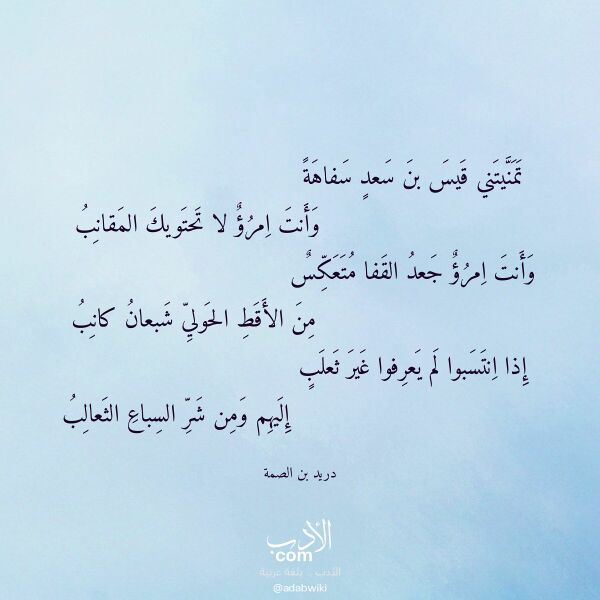 تَمَنَّيتَني قَيسَ بنَ سَعدٍ سَفاهَةً
وَأَنتَ اِمرُؤٌ لا تَحتَويكَ المَقانِبُ
وَأَنتَ اِمرُؤٌ جَعدُ القَفا مُتَعَكِّسٌ
مِنَ الأَقَطِ الحَوليِّ شَبعانُ كانِبُ
إِذا اِنتَسَبوا لَم يَعرِفوا غَيرَ ثَعلَبٍ
إِلَيهِم وَمِن شَرِّ السِباعِ الثَعالِبُ
دريد بن الصمة
الأدب
com
الأدب .. بلغة عربية
@adabwiki